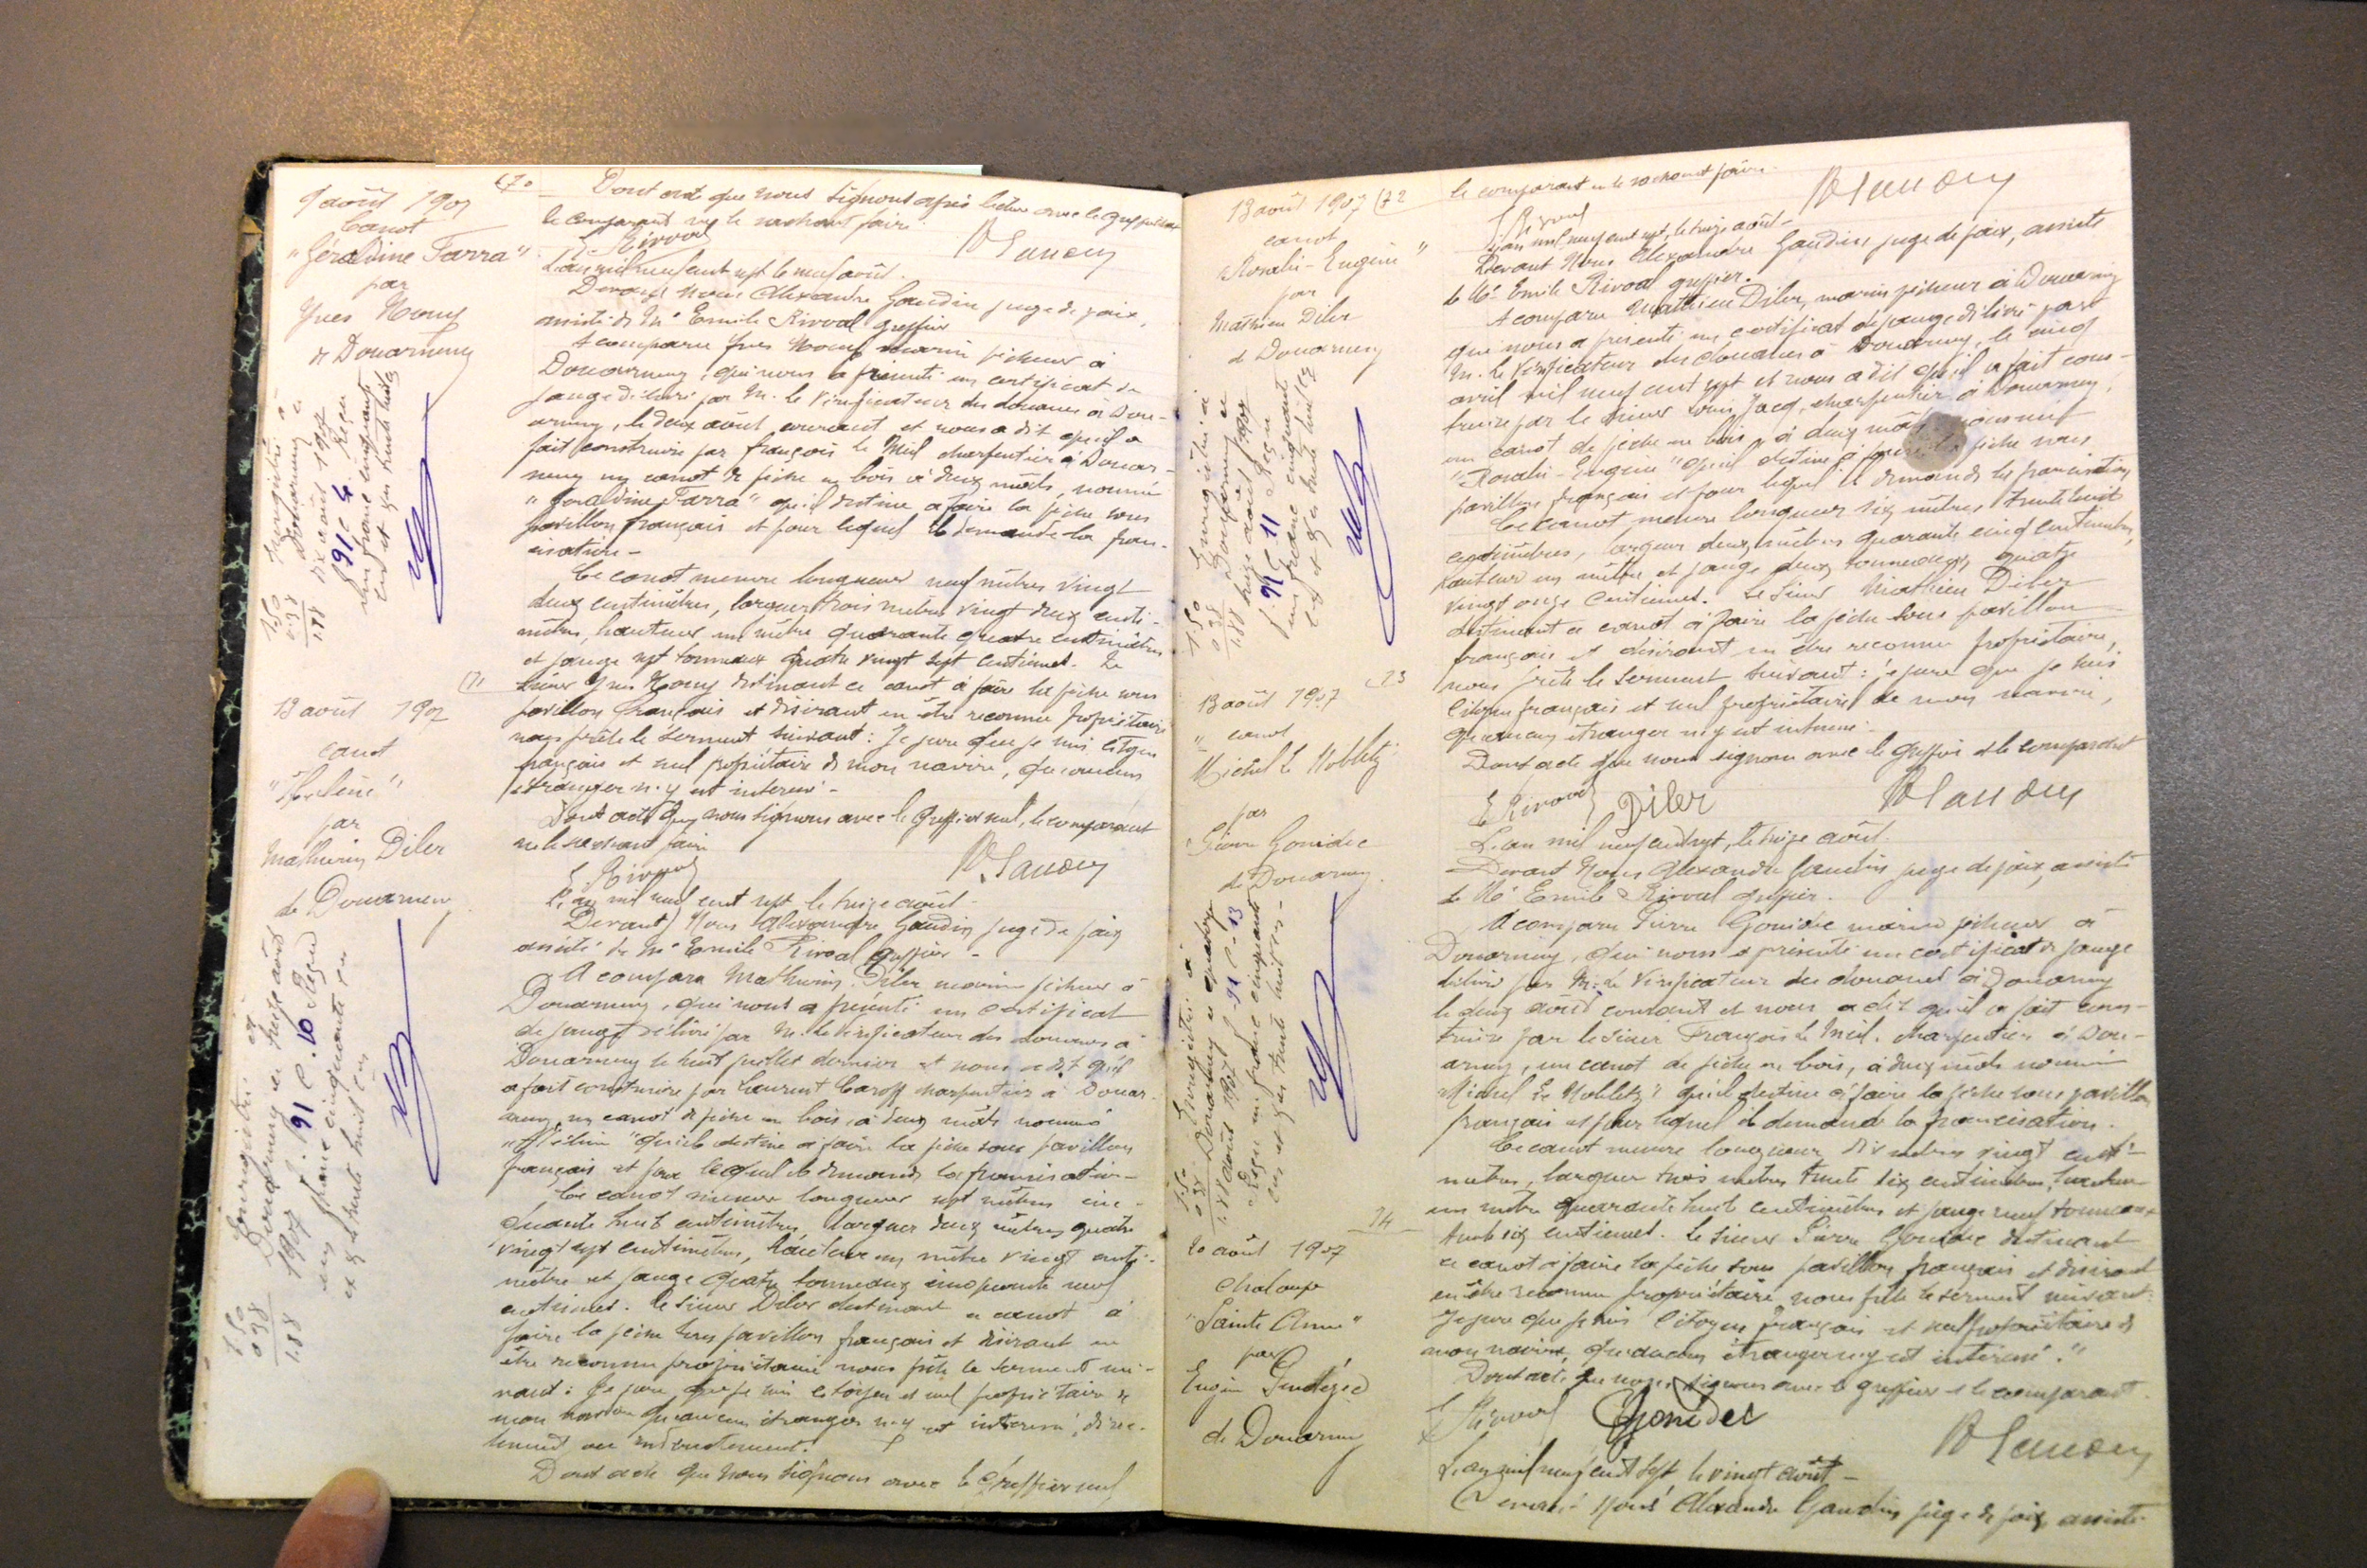 9 août 1907
Canot
"Géraldine Farra"
par
Yves Noury
de Douarnenez
Enregistré à
Douarnenez le
dix août 1907
f° 91 c 4. Reçu
un franc cinquante
cent et dix trente huit
1.50
0.38
1.88
13 août 1907
canot
"Hélène"
par
Mathurin Diler
de Douarnenez
Enregistré à
Douarnenez le treize août
1907 f. 91 C. 10 Reçu
un franc cinquante
et d. trente huit cen
1.50
0.38
1.88
70
Dont acte que nous signons après lecture avec le greffier seul
le comparant ne le sachant faire.
E. Rivoal
L'an mil neuf cent sept le neuf août.
Devant nous Alexandre Gaudin juge de paix,
assisté de Me Emile Rivoal greffier
A comparu Yves Noury marin pêcheur à
Douarnenez, qui nous a présenté un certificat de
jauge délivré par M. le Vérificateur des douanes à Dou-
arnenez, le deux août courant et nous a dit qu'il a
fait construire par François Le Meil charpentier à Douar-
nenez un canot de pêche en bois à deux mâts, nommé
"Géraldine Farra" qu'il destine à faire la pêche sous
pavillon français et pour lequel il demande la fran-
cisation -
Ce canot mesure longueur neuf mètres vingt
deux centimètres, largeur trois mètres vingt deux centi-
mètres, hauteur un mètre quarante quatre centimètres
et jauge sept tonneaux quatre vingt sept centièmes. Le
71
sieur Yves Noury destinant ce canot à faire la pêche sous
pavillon français et désirant en être reconnu propriétaire
nous prête le serment suivant : Je jure que je suis citoyen
français et seul propriétaire de mon navire, qu'aucun
étranger n'y est intéressé -
Dont acte que nous signons avec le greffier seul, le comparant
ne le sachant faire
E. Rivoal
L'an mil neuf cent sept le treize août -
Devant Nous Alexandre Gaudin juge de paix
assisté de Me Emile Rivoal greffier -
A comparu Mathurin Diler marin pêcheur à
Douarnenez, qui nous a présenté un certificat
de jauge délivré par M. le Vérificateur des douanes à
Douarnenez le huit juillet dernier et nous a dit qu'il
a fait construire par Laurent Caroff charpentier à Douar-
nenez, un canot de pêche en bois à deux mâts nommé
"Hélène" qu'il destine à faire la pêche sous pavillon
français et pour lequel il demande la francisation -
Ce canot mesure longueur sept mètres cin-
quante huit centimètres, largeur deux mètres quatre
vingt sept centimètres, hauteur un mètre vingt centi-
mètre et jauge quatre tonneaux cinquante neuf
centièmes. Le sieur Diler destinant ce canot à
faire la pêche sous pavillon français et désirant en
être reconnu propriétaire nous prête le serment sui-
vant : Je jure que je suis citoyen et seul propriétaire de
mon navire qu'aucun étranger n'y est intéressé, direc-
tement ou indirectement.
Dont acte que nous signons avec le Greffier seul
13 août 1907
canot
"Rosalie-Eugénie"
par
Mathieu Diler
de Douarnenez
Enregistré à
Douarnenez le
treize août 1907
f. 91 C 11 Reçu
un franc cinquante
1.50
0.38
1.88
13 août 1907
canot
Michel Le Nobletz
par
Pierre Gonidec
de Douarnenez.
Enregistré à
Douarnenez le quatorze
août 1907 f. 91 C. 13
Reçu un franc cinquante
1.50
0.38
1.88
20 août 1907
chaloupe
"Sainte Anne"
par
Eugène
de Douarnenez
72
le comparant ne le sachant faire.
E Rivoal
L'an mil neuf cent sept, le treize août -
Devant Nous Alexandre Gaudin juge de paix, assisté
de Me Emile Rivoal greffier.
A comparu Mathieu Diler, marin pêcheur à Douarnenez
qui nous a présenté un certificat de jauge délivré par
M. le Vérificateur des douanes à Douarnenez, le cinq
avril mil neuf cent sept et nous a dit qu'il a fait cons-
truire par le sieur Louis Jacq, charpentier à Douarnenez,
un canot de pêche en bois, à deux mâts, nommé
"Rosalie-Eugénie" qu'il destine à faire la pêche sous
pavillon français et pour lequel il demande la francisation
Ce canot mesure longueur six mètres trente huit
centimètres, largeur deux mètres quarante cinq centimètres,
hauteur un mètre, et jauge deux tonneaux quatre
vingt onze centièmes. Le sieur Mathieu Diler
destinant ce canot à faire la pêche sous pavillon
français et désirant en être reconnu propriétaire,
73
nous prête le serment suivant : je jure que je suis
citoyen français et seul propriétaire de mon navire,
qu'aucun étranger n'y est intéressé.
Dont acte que nous signons avec le greffier et le comparant
E Rivoal Diler
L'an mil neuf cent sept, le treize août.
Devant Nous Alexandre Gaudin juge de paix, assisté
de Me Emile Rivoal greffier.
A comparu Pierre Gonidec marin pêcheur à
Douarnenez, qui nous a présenté un certificat de jauge
délivré par M. le Vérificateur des douanes à Douarnenez
le deux août courant et nous a dit qu'il a fait cons-
truire par le sieur François Le Meil, charpentier à Dou-
arnenez, un canot de pêche en bois, à deux mâts nommé
"Michel Le Nobletz" qu'il destine à faire la pêche sous pavillon
français et pour lequel il demande la francisation.
Ce canot mesure longueur dix mètres vingt centi-
mètres, largeur trois mètres trente six centimètres, hauteur
un mètre quarante huit centimètres et jauge neuf tonneaux
74
trente six centièmes. Le sieur Pierre Gonidec destinant
ce canot à faire la pêche sous pavillon français et désirant
en être reconnu propriétaire nous prête le serment suivant :
Je jure que je suis citoyen français et seul propriétaire de
mon navire, qu'aucun étranger n'y est intéressé."
Dont acte que nous signons avec le greffier et le comparant.
E Rivoal Gonidec
L'an mil neuf cent sept le vingt août -
Devant Nous Alexandre Gaudin juge de paix, assisté